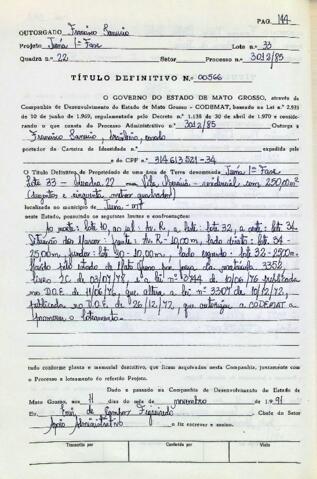 PAG 144
OUTORGADO Francisco
Projeto Juína 1ª Fase Lote n.º 33
Quadra n.º 22 Setor Processo n.º 3012/85
TÍTULO DEFINITIVO N.º 00566
O GOVERNO DO ESTADO DE MATO GROSSO, através da
Companhia de Desenvolvimento do Estado de Mato Grosso - CODEMAT, baseado na Lei n.º 2.939
de 10 de junho de 1.969, regulamentada pelo Decreto n.º 1.138 de 30 de abril de 1.970 e considerando
o que consta do Processo Administrativo n.º 3012/85 Outorga a
Francisco brasileiro,
portador da Carteira de Identidade n.º expedida pelo
e do CPF n.º 314613521-34
O Título Definitivo, de Propriedade de uma Área de Terra denominada Juína 1ª Fase
Lote 33 - Quadra 22 residencial com 250,00 m²
(duzentos e cinquenta metros quadrados)
localizada no município de Juína - MT
neste Estado, possuindo os seguintes limites e confrontações:
Ao norte: lote 10, ao sul: Av. R, a leste: lote 32, a oeste: lote 34
Situação dos Marcos: frente: Av. R - 10,00 m, lado direito: lote 34 -
25,00 m, fundos: lote 10,00 m, lado esquerdo: lote 32 - 25,00 m
Havido pelo Estado de Mato Grosso por força da matrícula 3352
livro 2C de 03/07/78, lei nº 3744 de 10/06/76 publicada
no D.O.E. de 11/06/76, que altera a lei nº 3307 de 18/12/72,
publicada no D.O.E. de 26/12/72, que autoriza a CODEMAT a
promover o loteamento.
tudo conforme planta e memorial descritivo, que ficam arquivadas nesta Companhia, juntamente com
o Processo e loteamento do referido Projeto.
Dado e passado na Companhia de Desenvolvimento do Estado de
Mato Grosso, aos 11 dias do mês de novembro de 1.991
Eu, de Campos Figueiredo Chefe do Setor
Apoio Administrativo o fiz escrever e assino.
Transcrito por Conferido por Visto